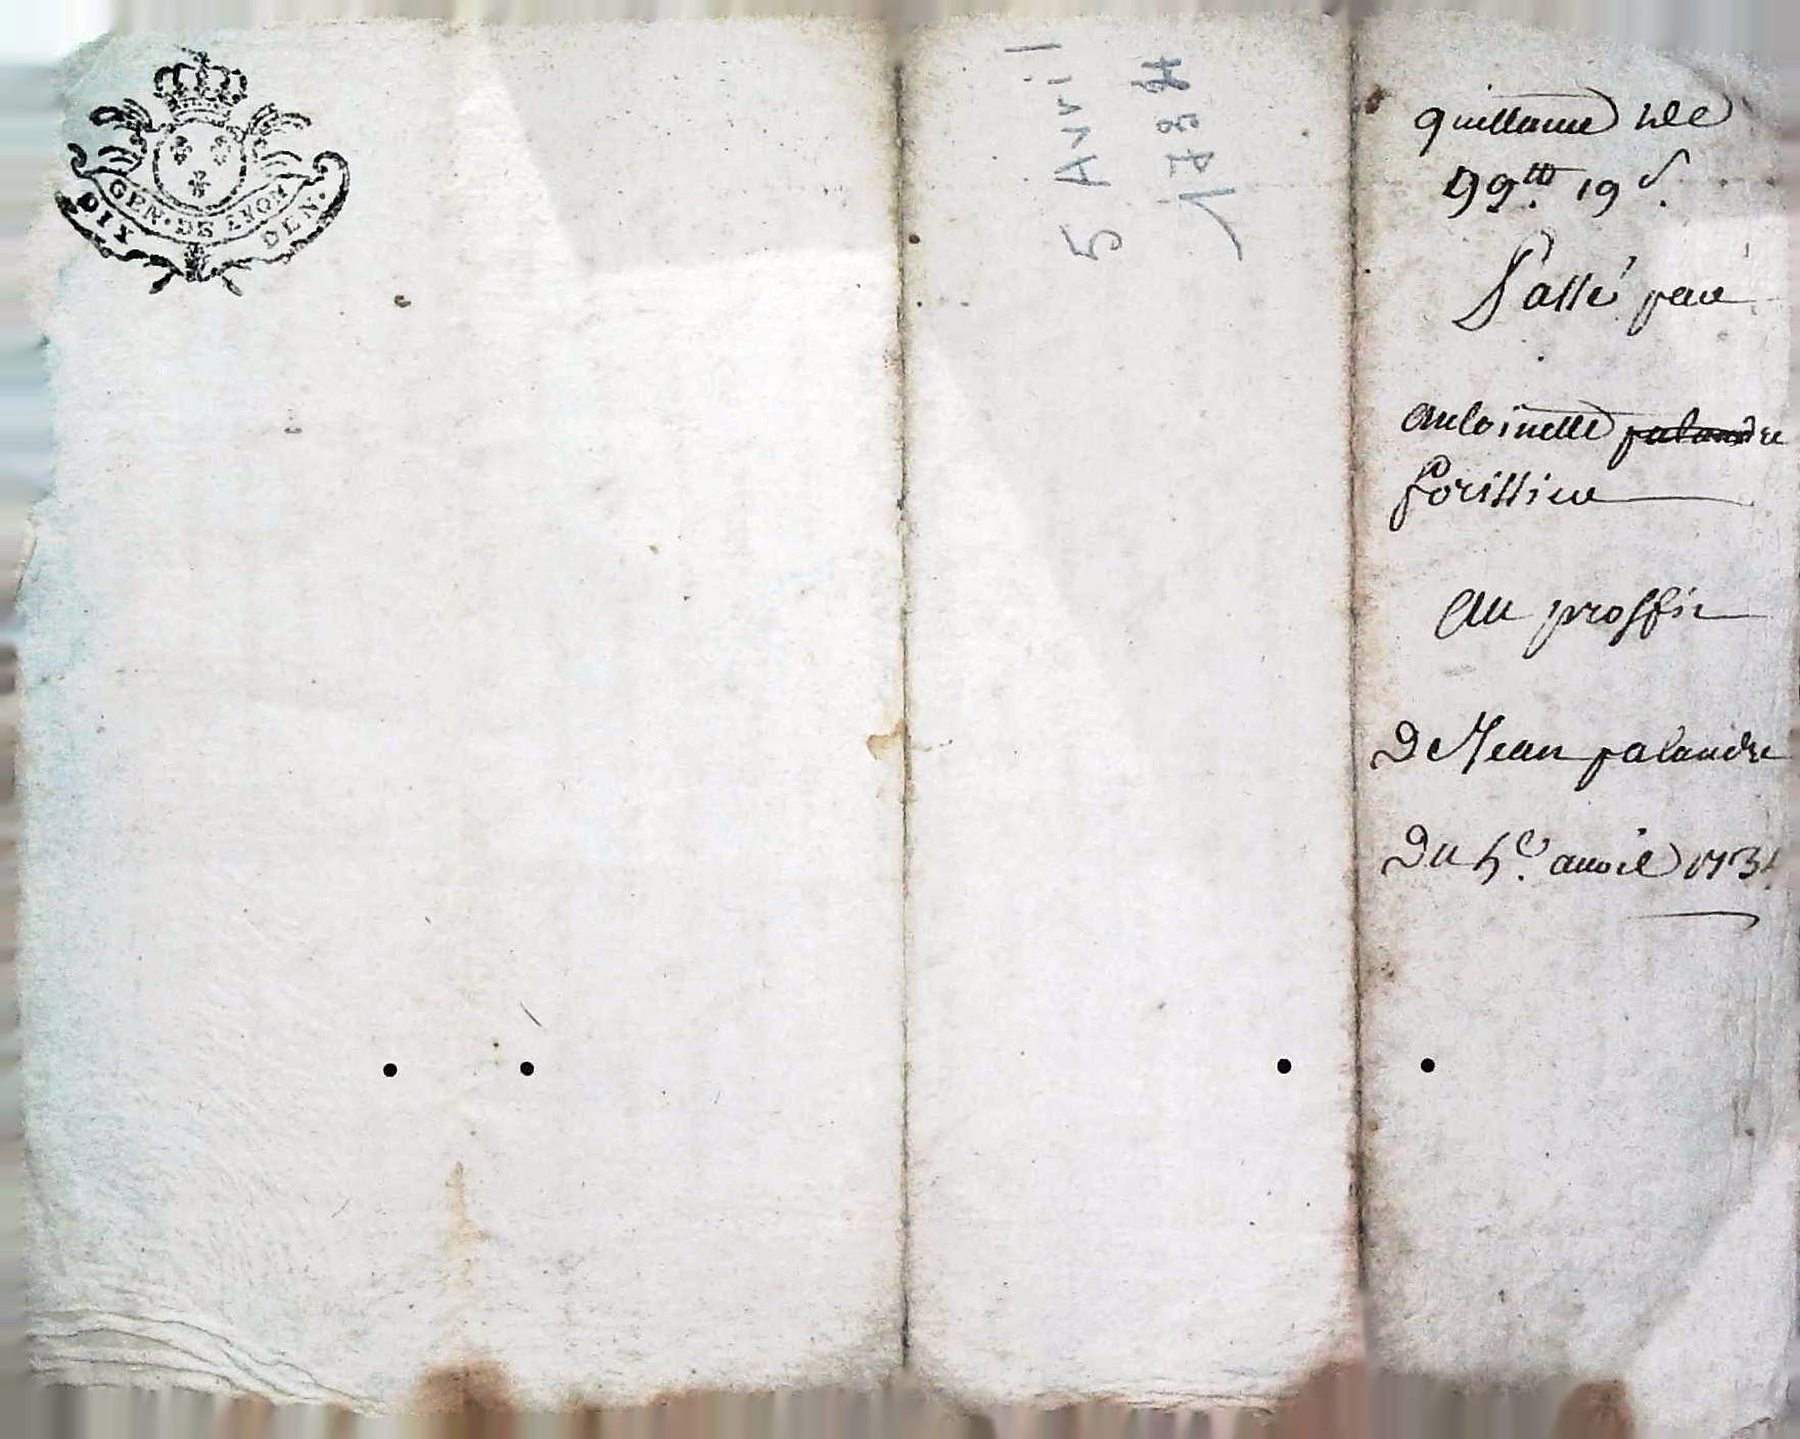 GEN. DE LYON
DIX DEN.
5 Avril
1734
quittance de
99tt 19 s.
Passé par
antoinette palandre
forissier
Au proffit
De Jean palandre
Du 5e. avril 1734